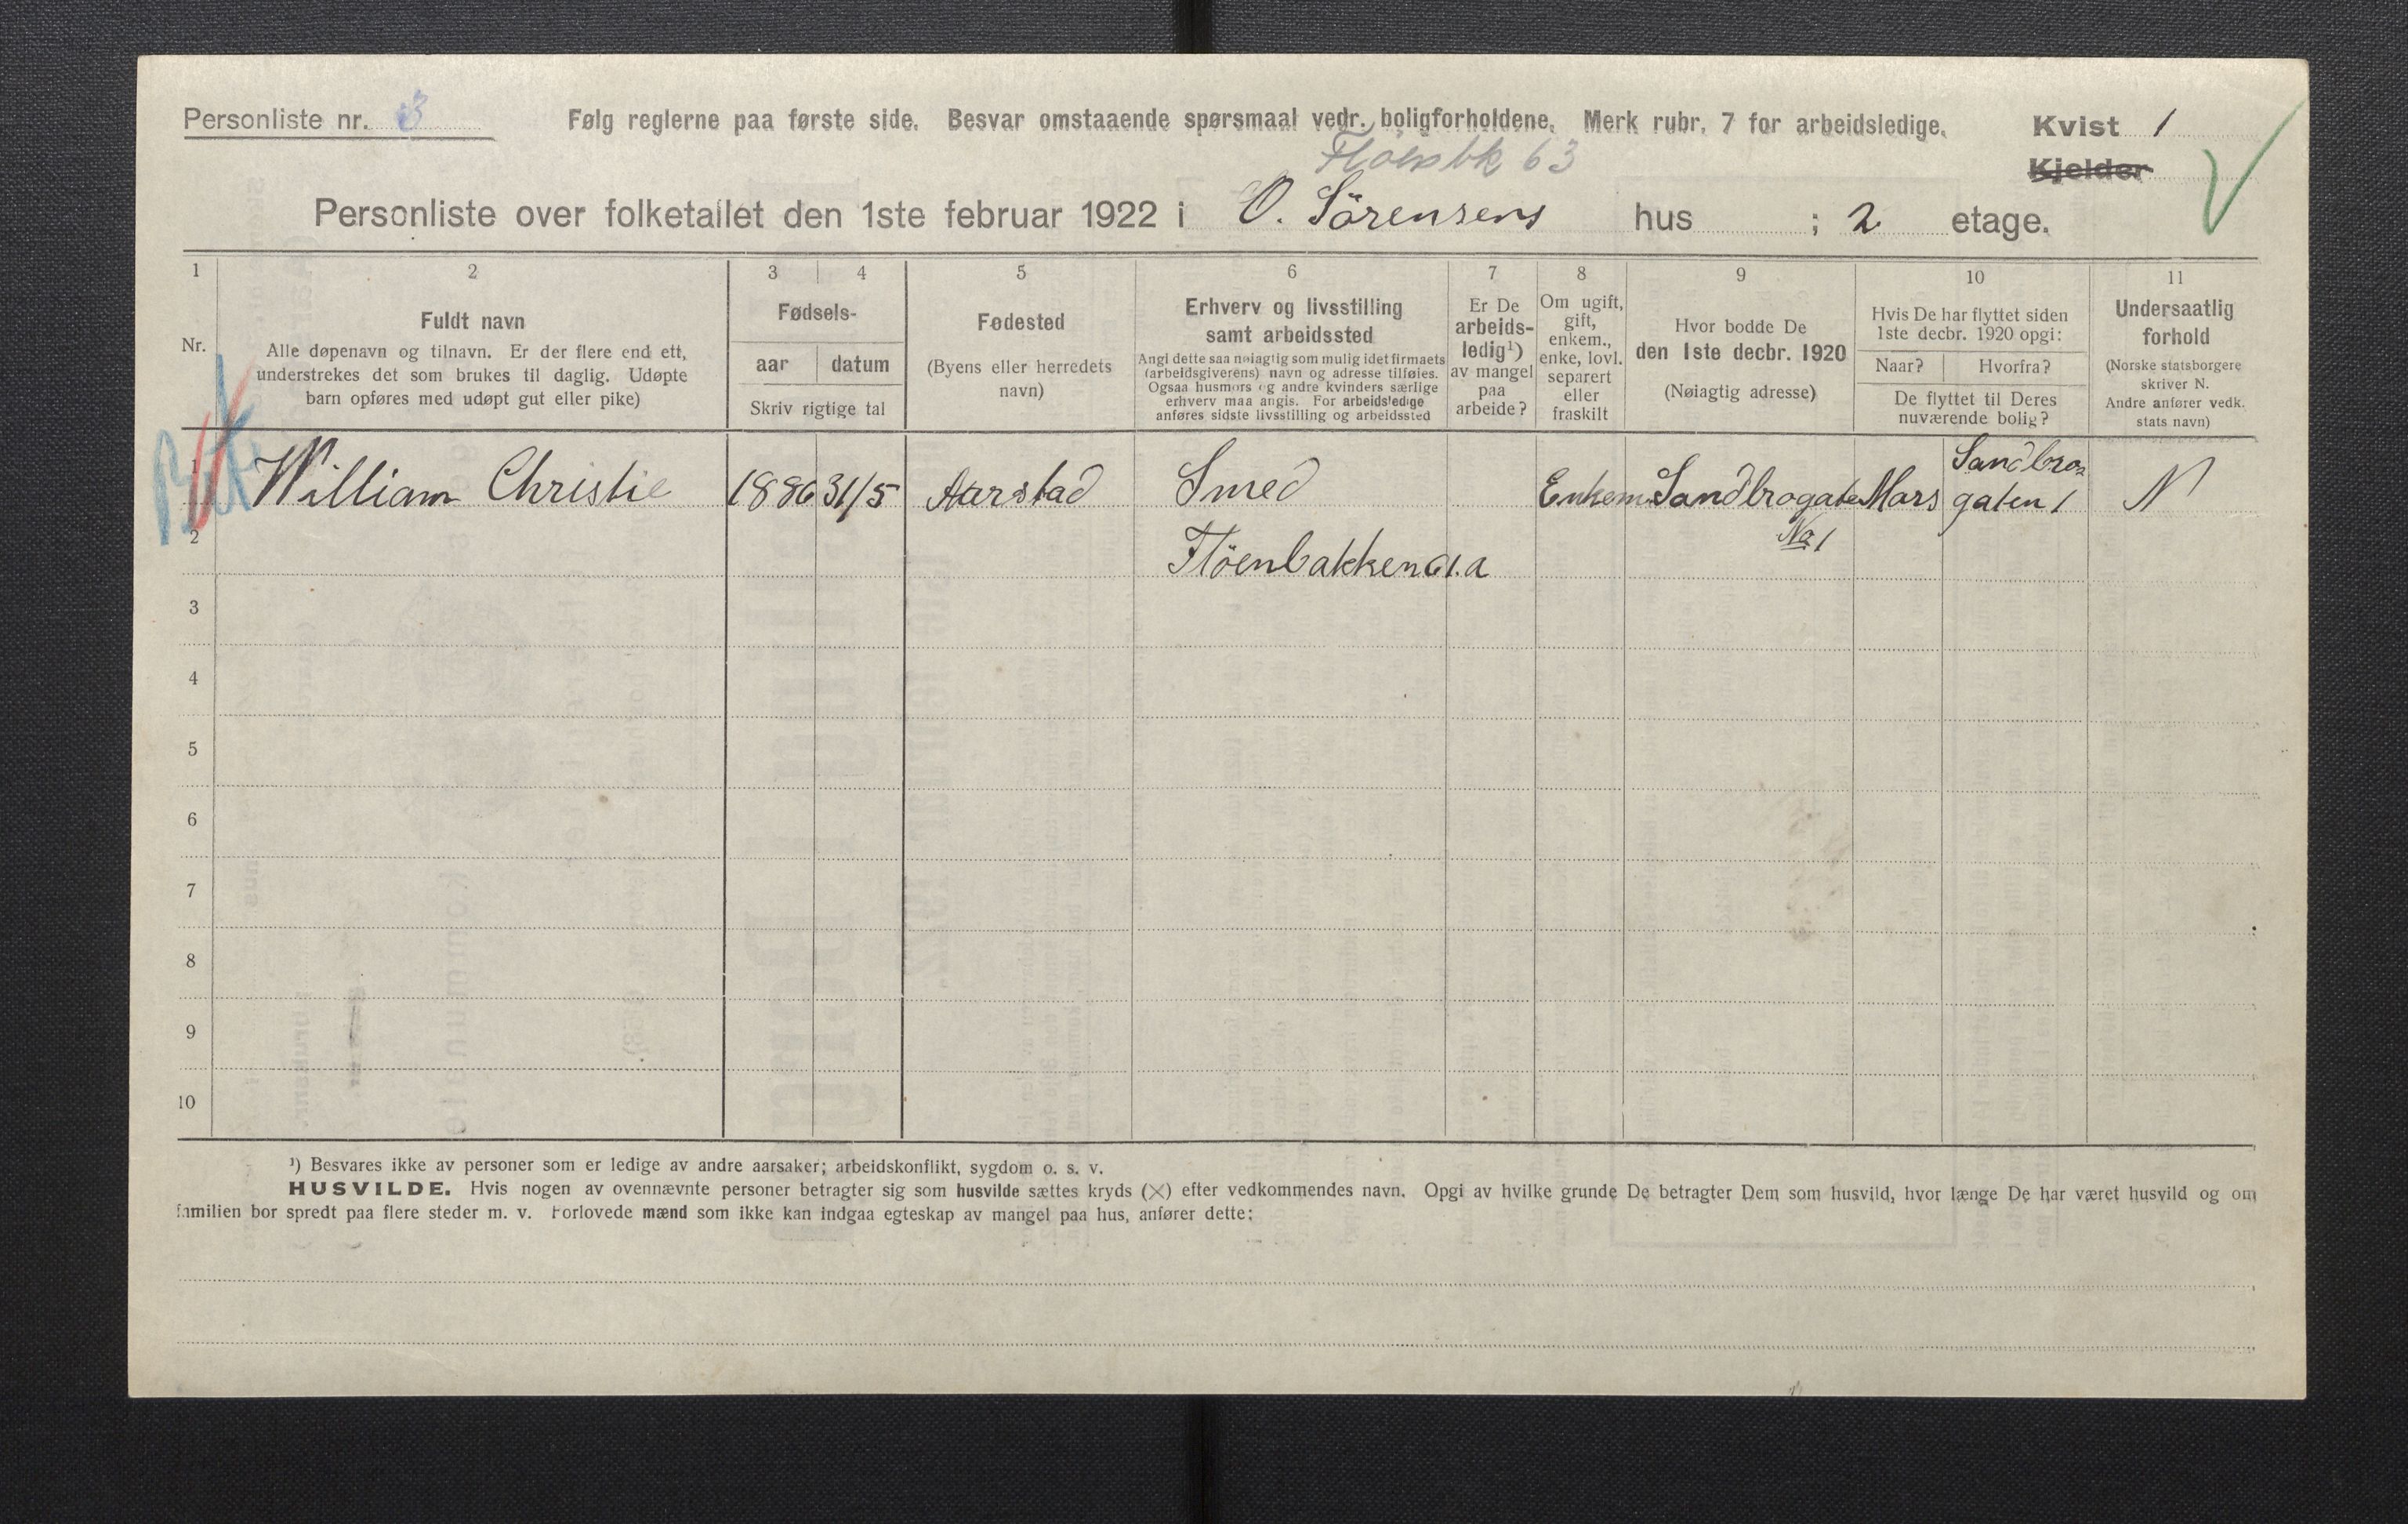 Personliste nr. 3
Følg reglerne paa første side. Besvar omstaaende spørsmaal vedr. boligforholdene. Merk rubr. 7 for arbeidsledige.
Kvist 1
Kjelder
Fløenbk 63
Personliste over folketallet den 1ste februar 1922 i O. Sörensens hus ; 2 etage.
1 2 3 4 5 6 7 8 9 10 11
Nr.
Fuldt navn
Alle døpenavn og tilnavn. Er der flere end ett,
understrekes det som brukes til daglig. Udøpte
barn opføres med udøpt gut eller pike)
Fødsels-
aar datum
Skriv rigtige tal
Fødested
(Byens eller herredets
navn)
Erhverv og livsstilling
samt arbeidssted
Angi dette saa nøiagtig som mulig idet firmaets
(arbeidsgiverens) navn og adresse tilføies.
Ogsaa husmors og andre kvinders særlige
erhverv maa angis. For arbeidsledige
anføres sidste livsstilling og arbeidssted
Er De
arbeids-
ledig¹)
av mangel
paa
arbeide?
Om ugift,
gift,
enkem.,
enke, lovl.
separert
eller
fraskilt
Hvor bodde De
den 1ste decbr. 1920
(Nøiagtig adresse)
Hvis De har flyttet siden
1ste decbr. 1920 opgi:
Naar? Hvorfra?
De flyttet til Deres
nuværende bolig?
Undersaatlig
forhold
(Norske statsborgere
skriver N.
Andre anfører vedk.
stats navn)
1 William Christie 1886 31/5 Aarstad Smed Enkem. Sandbrogate No 1 Mars Sandbrogaten 1 N
2 Flöenbakken 61.a
3
4
5
6
7
8
9
10
¹) Besvares ikke av personer som er ledige av andre aarsaker; arbeidskonflikt, sygdom o. s. v.
HUSVILDE. Hvis nogen av ovennævnte personer betragter sig som husvilde sættes kryds (×) efter vedkommendes navn. Opgi av hvilke grunde De betragter Dem som husvild, hvor længe De har været husvild og om
familien bor spredt paa flere steder m. v. Forlovede mænd som ikke kan indgaa egteskap av mangel paa hus, anfører dette: